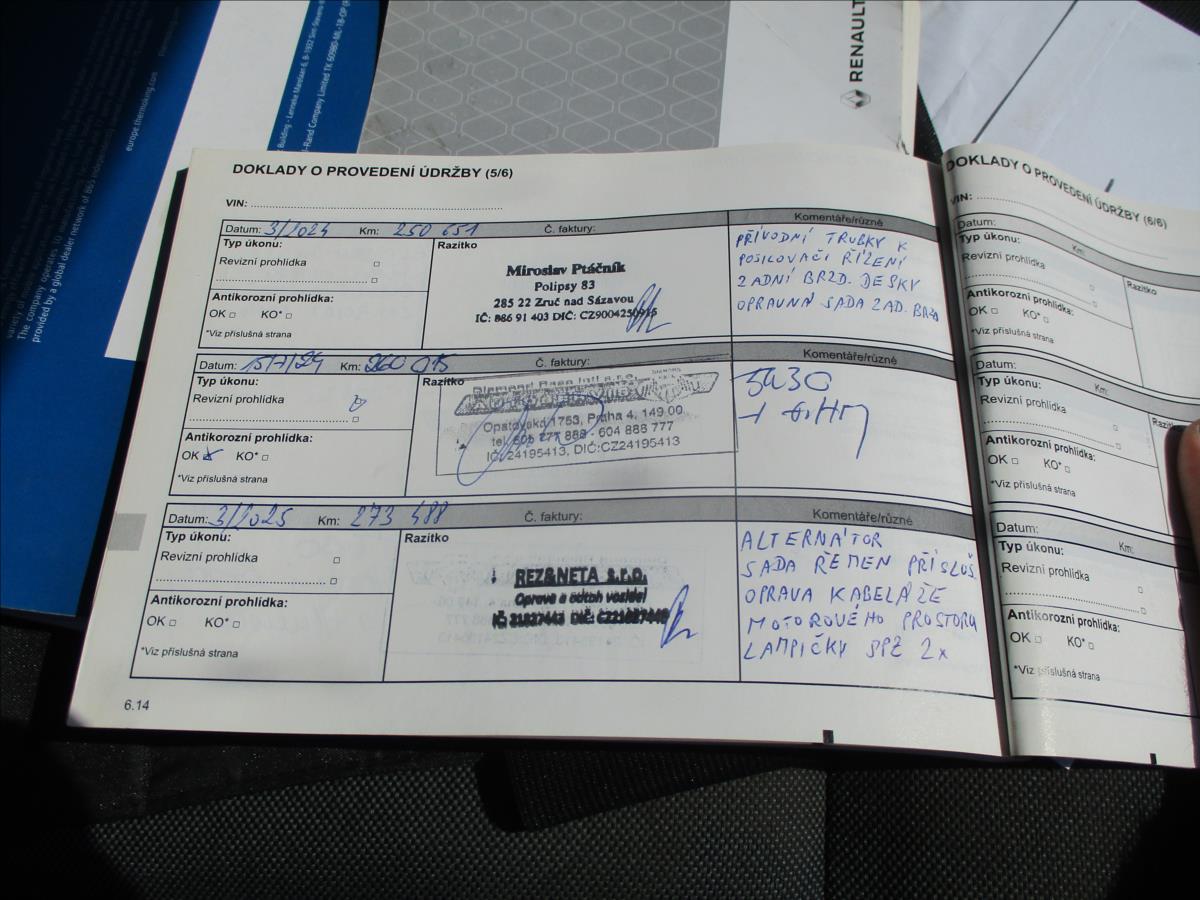 Building - Lenneke Marelaan 6, B-1932 Sint-Stevens
Rand Company Limited TK 60985-ML-1B-OP
europe.thermoking.com
The company operates
provided by a global dealer network of 865 independently
RENAULT
DOKLADY O PROVEDENÍ ÚDRŽBY (5/6)
VIN:
Datum: 3/2024 Km: 250 651 Č. faktury: Komentáře/různé
Typ úkonu:
Revizní prohlídka
Antikorozní prohlídka:
OK KO*
*Viz příslušná strana
Razítko
Miroslav Ptáčník
Polipsy 83
285 22 Zruč nad Sázavou
IČ: 886 91 403 DIČ: CZ9004250915
PŘÍVODNÍ TRUBKY K
POSILOVAČI ŘÍZENÍ
ZADNÍ BRZD. DESKY
OPRAVNÁ SADA ZAD. BRZD
Datum: 15/7/24 Km: 260 015 Č. faktury: Komentáře/různé
Typ úkonu:
Revizní prohlídka
Antikorozní prohlídka:
OK KO*
*Viz příslušná strana
Razítko
Opatovská 1753, Praha 4, 149 00
tel. 605 277 888 - 604 888 777
IČ: 24195413, DIČ:CZ24195413
5W30
Datum: 3/2025 Km: 273 488 Č. faktury: Komentáře/různé
Typ úkonu:
Revizní prohlídka
Antikorozní prohlídka:
OK KO*
*Viz příslušná strana
Razítko
REZ&NETA s.r.o.
Oprava a odtah vozidel
IČ 21827443 DIČ:
ALTERNÁTOR
SADA ŘEMEN PŘÍSLUŠ.
OPRAVA KABELÁŽE
MOTOROVÉHO PROSTORU
LAMPIČKY SPZ 2x
6.14
DOKLADY O PROVEDENÍ ÚDRŽBY (6/6)
VIN:
Datum: Km:
Typ úkonu:
Revizní prohlídka
Antikorozní prohlídka:
OK KO*
*Viz příslušná strana
Razítko
Datum: Km:
Typ úkonu:
Revizní prohlídka
Antikorozní prohlídka:
OK KO*
*Viz příslušná strana
Datum: Km:
Typ úkonu:
Revizní prohlídka
Antikorozní prohlídka:
OK KO*
*Viz příslušná strana